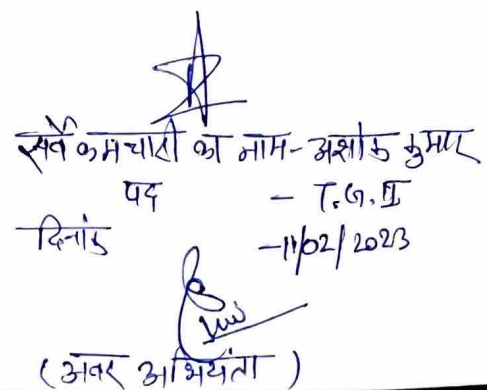 सर्वे कर्मचारी का नाम - अशोक कुमार
पद - T.G.II
दिनांक - 11/02/2023
(अवर अभियंता)